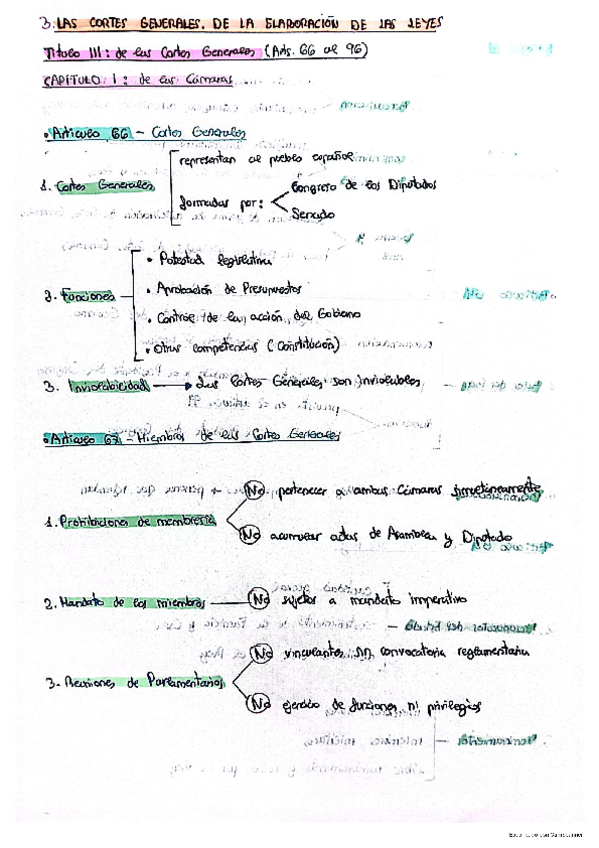 3. LAS CORTES GENERALES. DE LA ELABORACIÓN DE LAS LEYES
Título III: de las Cortes Generales (Arts. 66 al 96)
CAPÍTULO I: de las Cámaras
• Artículo 66 - Cortes Generales
1. Cortes Generales
representan al pueblo español
formadas por:
Congreso de los Diputados
Senado
2. Funciones
• Potestad legislativa
• Aprobación de Presupuestos
• Control de la acción del Gobierno
• Otras competencias (Constitución)
3. Inviolabilidad → Las Cortes Generales son Inviolables
• Artículo 67 - Miembros de las Cortes Generales
1. Prohibiciones de membresía
No pertenecer a ambas Cámaras simultáneamente
No acumular actas de Asamblea y Diputado
2. Mandato de los miembros — No sujetos a mandato imperativo
3. Reuniones de Parlamentarios
No vinculantes sin convocatoria reglamentaria
No ejercicio de funciones ni privilegios